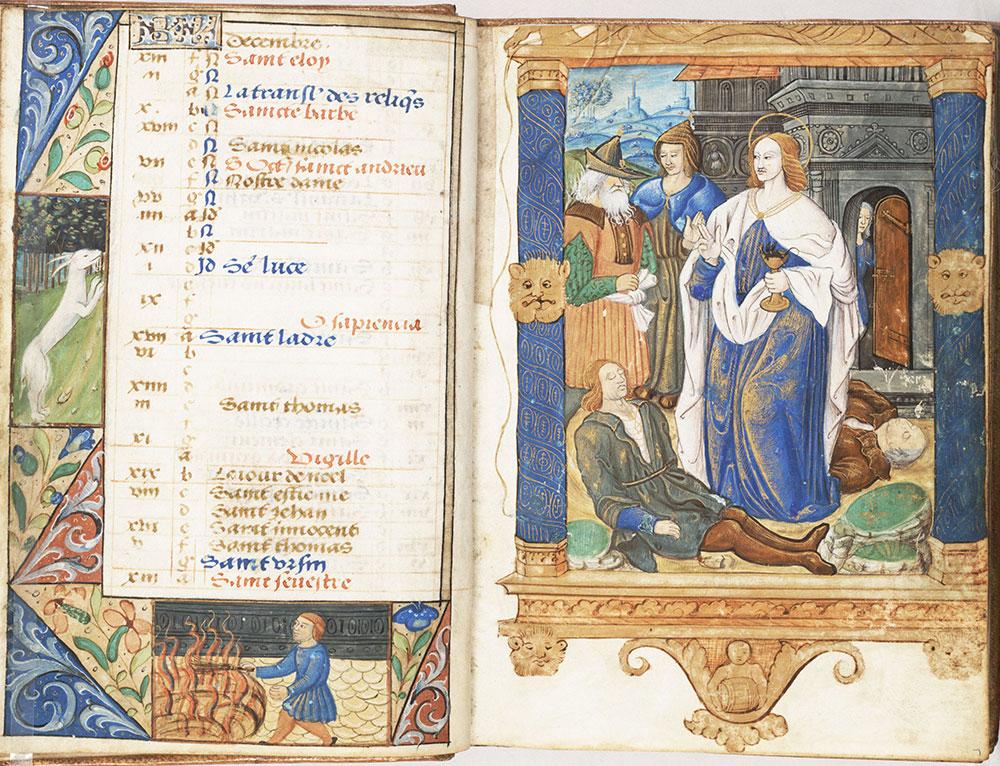 Decembre.
xiii f N Saint eloy
ii g N
a N La transl' des reliq's
x. b N Saincte barbe
xviii c N
d N Saint nicolas
vii e N S Oct' sainct andrieu
f N Nostre dame
xv g N
iiii a Id
b N
xii c Id
i d Id Ste luce
e
ix f
g O sapiencia
xvii a Saint ladre
vi b
c
xiiii d
iii e Saint thomas
f
xi g
a Vigille
xix b Le iour de noel
viii c Saint estienne
d Saint Jehan
xvi e Saint innocent
v f Saint thomas
g Saint vrsin
xiii a Saint seuestre